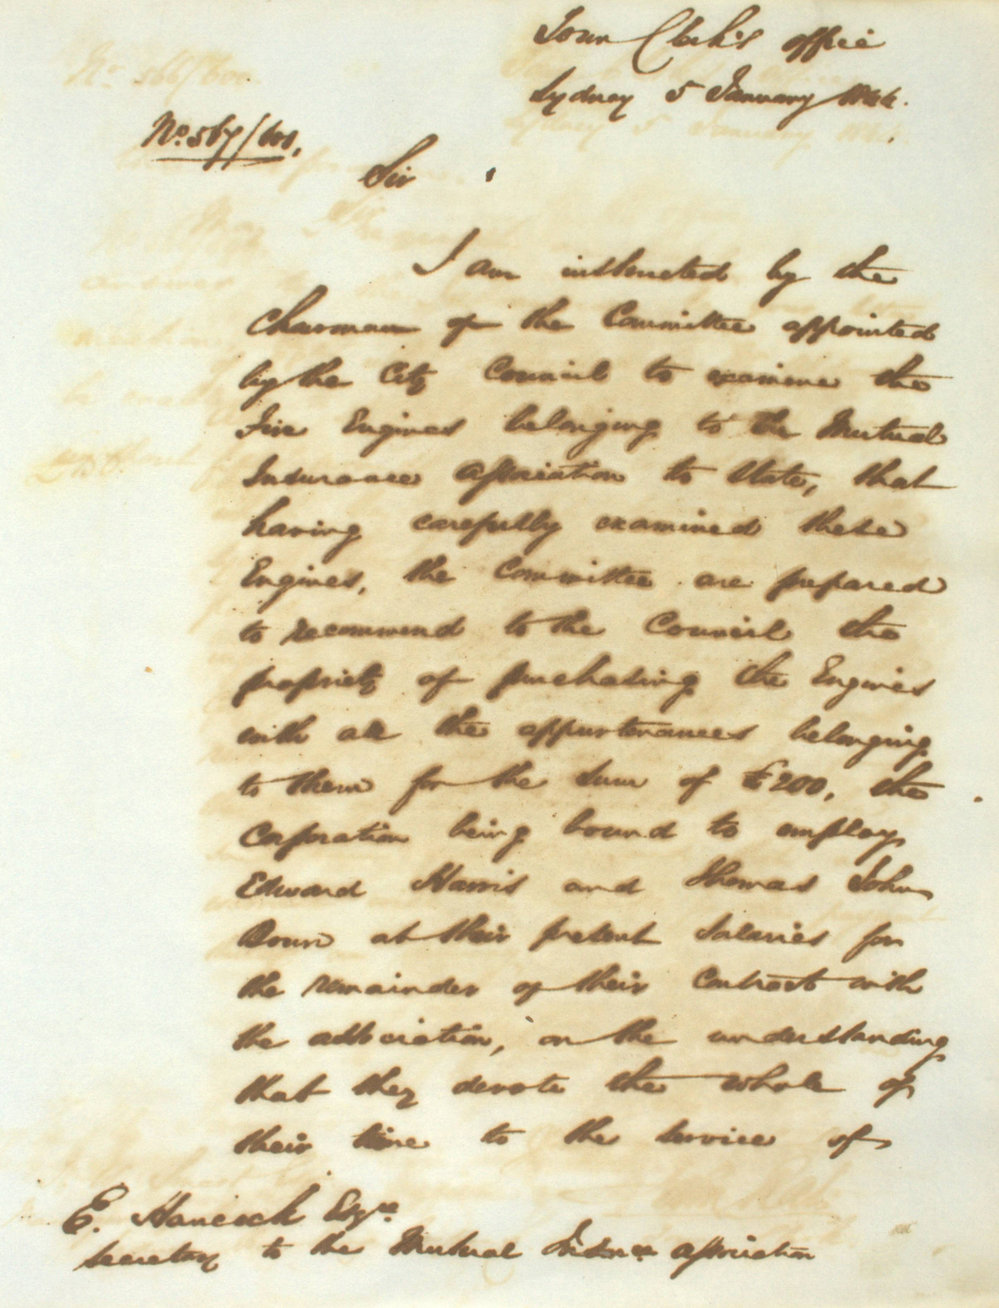 Town Clerk's office
Sydney 5 January 1844.
No. 567/600.
Sir
I am instructed by the
Chairman of the Committee appointed
by the City Council to examine the
Fire Engines belonging to the Mutual
Insurance Association to State, that
having carefully examined these
Engines, the Committee are prepared
to recommend to the Council the
propriety of purchasing the Engines
with all the appurtenances belonging
to them for the Sum of £200, the
Corporation being bound to employ
Edward Harris and Thomas John
Bown at their present Salaries for
the remainder of their Contract with
the association, on the understanding
that they devote the whole of
their time to the service of
E. Hancock Esqre
Secretary to the Mutual Insnce Association